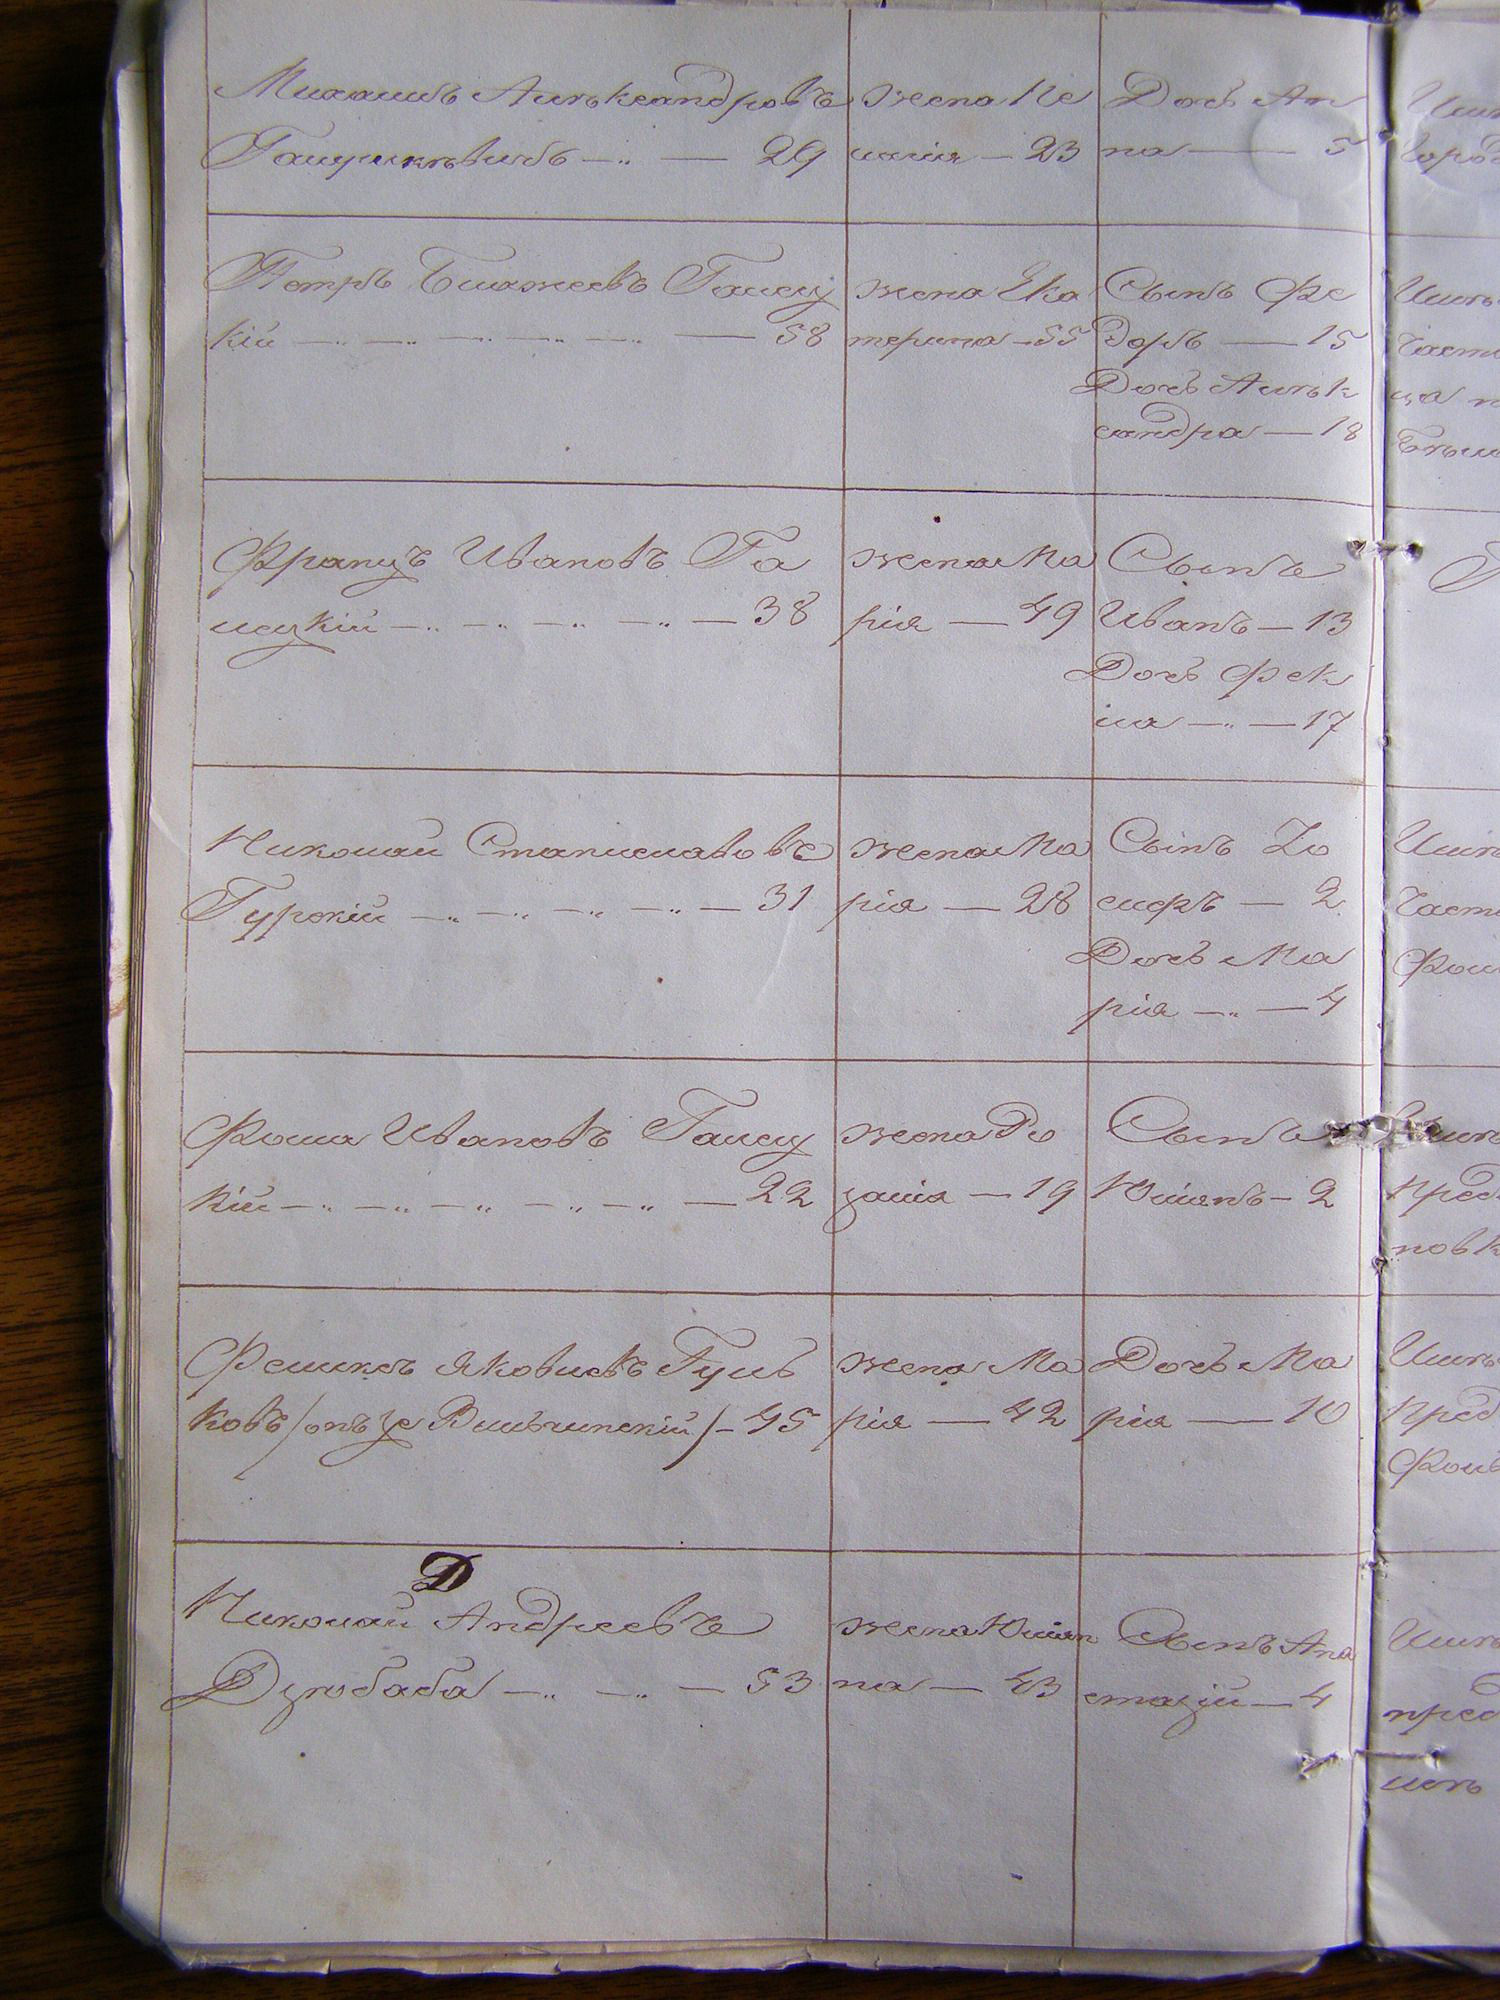 Михаилъ Александровъ
29
жена Пе
лагія — 23
Дочь Ан
на — 5
Петръ Блажеевъ Галец
кій — 58
жена Ека
терина — 55
Сынъ Фе
доръ — 15
Дочь Алек
сандра — 18
Францъ Ивановъ Га
лецкій — 38
жена Ма
рія — 49
Сынъ
Иванъ — 13
Дочь Фек
ла — 17
Николай Станиславовъ
Гурскій — 31
жена Ма
рія — 28
Сынъ Іо
сифъ — 2
Дочь Ма
рія — 4
Фома Ивановъ Галец
кій — 22
жена Ро
залія — 19
Сынъ
Юліянъ — 2
Феликсъ Яковлевъ Гуль
ковъ / онъ же Вильчинскій / — 45
жена Ма
рія — 42
Дочь Ма
рія — 10
Д
Николай Андреевъ
Дзюбаба — 53
жена Юліян
на — 43
Сынъ Ана
стазій — 4